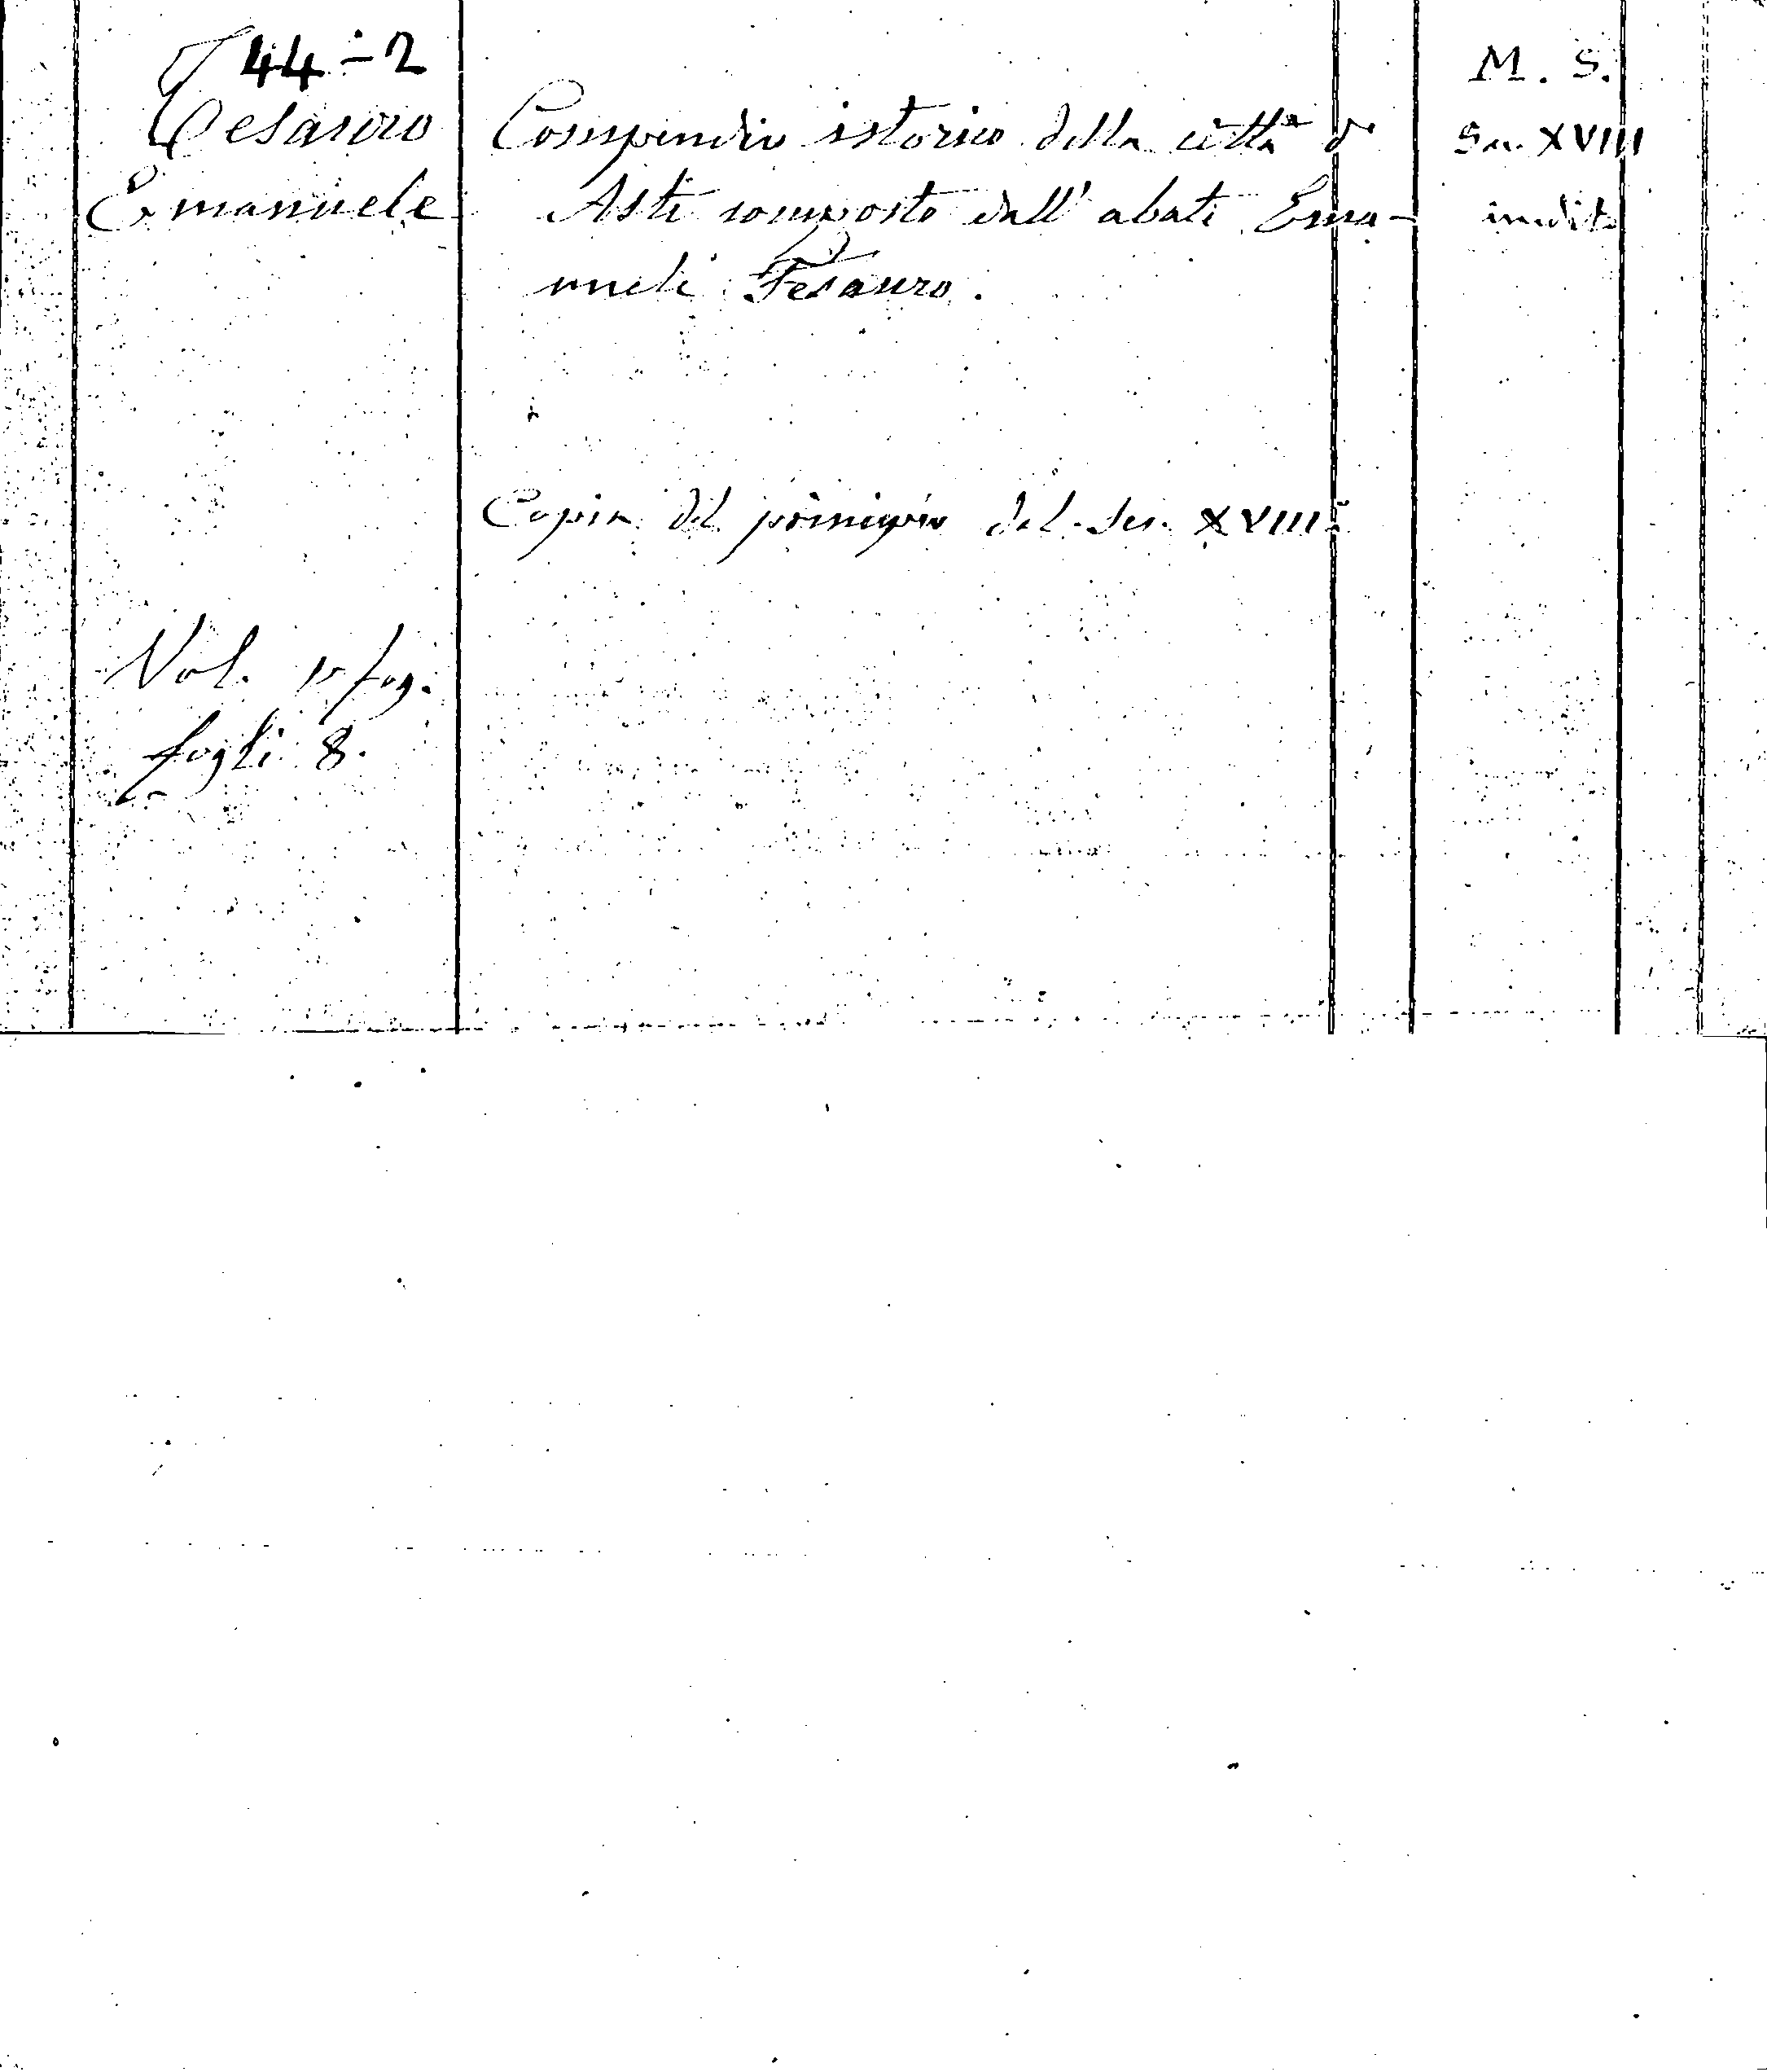 44-2
Tesauro
Emanuele
Compendio istorico della città di
Asti composto dall' abate Ema-
nuele Tesauro.
Copia del principio del Sec. XVIII
M. S.
Sec. XVIII
inedito
Vol. in fog.
fogli 8.